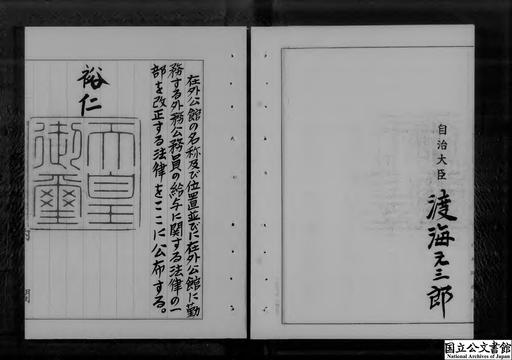 自治大臣
渡海元三郎
在外公館の名称及び位置並びに在外公館に勤
務する外務公務員の給与に関する法律の一
部を改正する法律をここに公布する。
裕仁
天皇
御璽
国立公文書館
National Archives of Japan